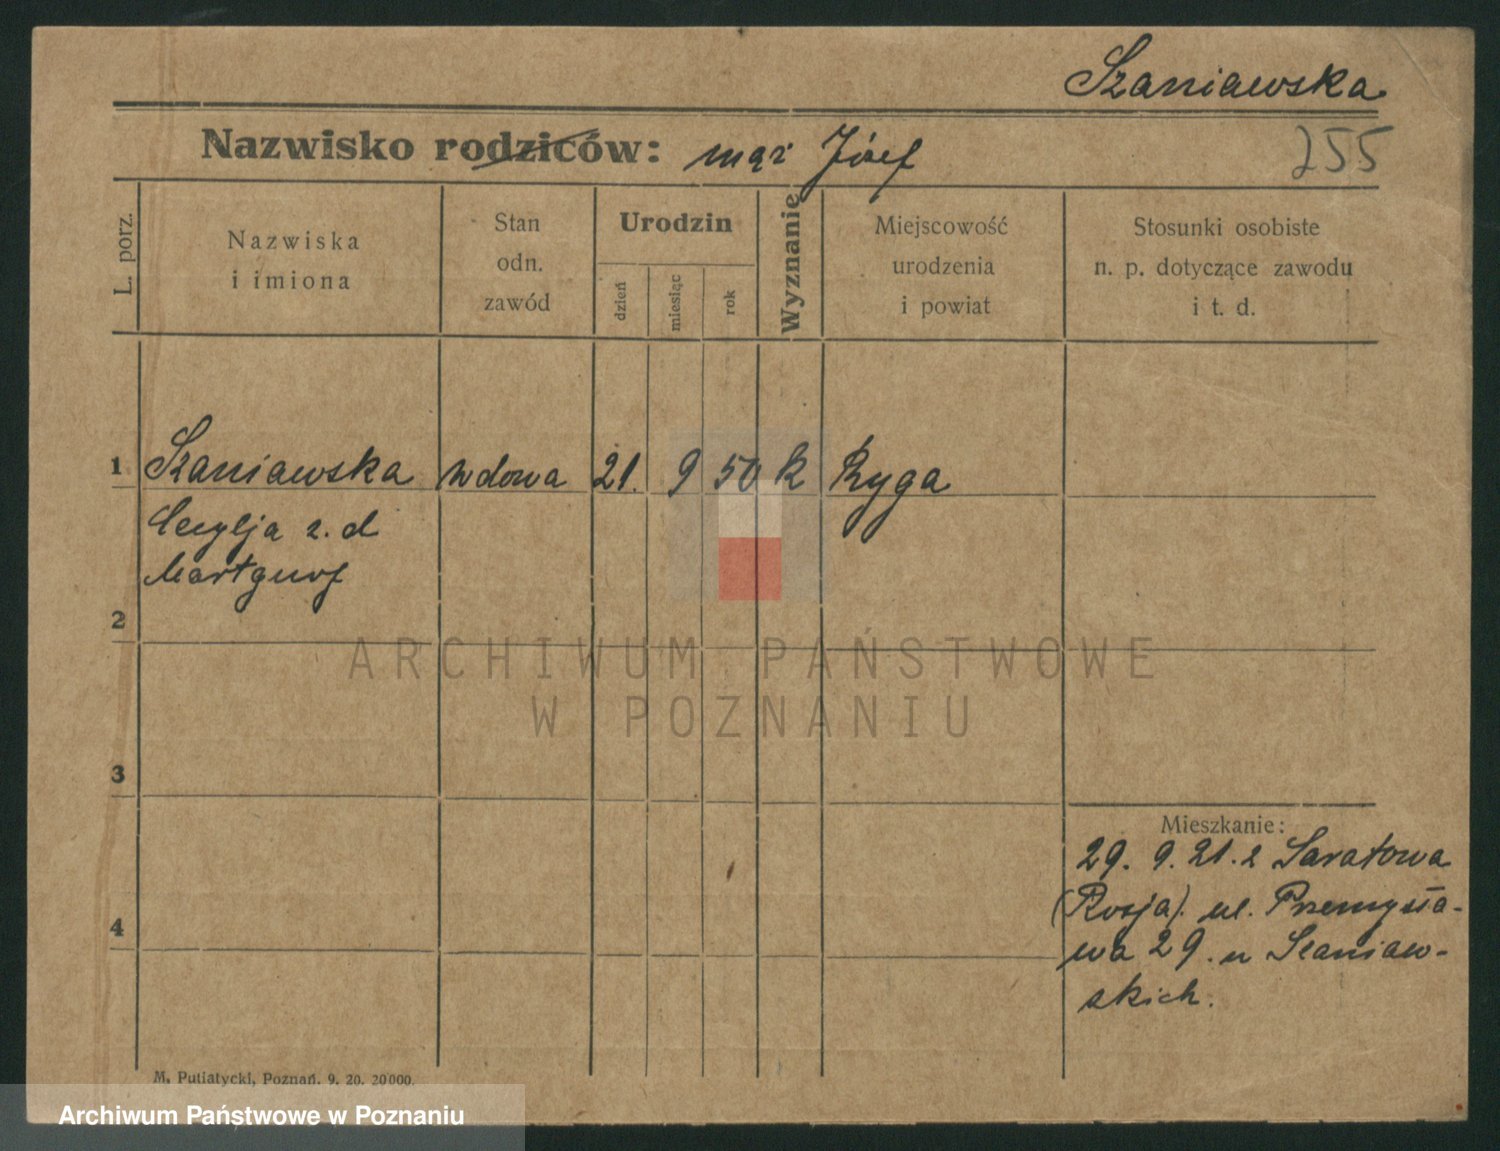 Szaniawska
Nazwisko rodziców: mąż Józef
255
L. porz.
Nazwiska
i imiona
Stan
odn.
zawód
Urodzin
dzień
miesiąc
rok
Wyznanie
Miejscowość
urodzenia
i powiat
Stosunki osobiste
n. p. dotyczące zawodu
i t. d.
1 Szaniawska wdowa 21. 9 50 k Ryga
Cecylja z. d
2
ARCHIWUM PAŃSTWOWE
W POZNANIU
3
Mieszkanie:
29. 9. 21. z Saratowa
(Rosja). ul. Przemysła-
4
wa 29. u Szaniaw-
skich.
M. Putiatycki, Poznań. 9. 20. 20000.
Archiwum Państwowe w Poznaniu